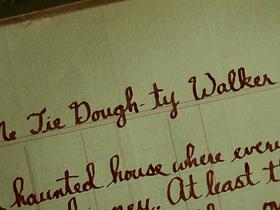 Tie Dough-ty Walker
haunted house where every
At least t